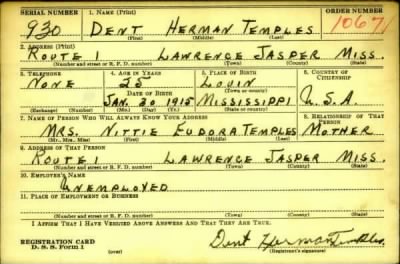 SERIAL NUMBER 1. NAME (Print) ORDER NUMBER
930 DENT HERMAN TEMPLES 10671
(First) (Middle) (Last)
2. ADDRESS (Print)
ROUTE 1 LAWRENCE JASPER MISS.
(Number and street or R. F. D. number) (Town) (County) (State)
3. TELEPHONE 4. AGE IN YEARS 5. PLACE OF BIRTH 6. COUNTRY OF CITIZENSHIP
NONE 25 LOUIN
DATE OF BIRTH (Town or county)
JAN. 20 1915 MISSISSIPPI U.S.A.
(Exchange) (Number) (Mo.) (Day) (Yr.) (State or country)
7. NAME OF PERSON WHO WILL ALWAYS KNOW YOUR ADDRESS 8. RELATIONSHIP OF THAT PERSON
MRS. NITTIE EUDORA TEMPLES MOTHER
(Mr., Mrs., Miss) (First) (Middle) (Last)
9. ADDRESS OF THAT PERSON
ROUTE 1 LAWRENCE JASPER MISS.
(Number and street or R. F. D. number) (Town) (County) (State)
10. EMPLOYER'S NAME
UNEMPLOYED
11. PLACE OF EMPLOYMENT OR BUSINESS
(Number and street or R. F. D. number) (Town) (County) (State)
I AFFIRM THAT I HAVE VERIFIED ABOVE ANSWERS AND THAT THEY ARE TRUE.
REGISTRATION CARD
D. S. S. Form 1 (over) Dent Herman Temples
(Registrant's signature)